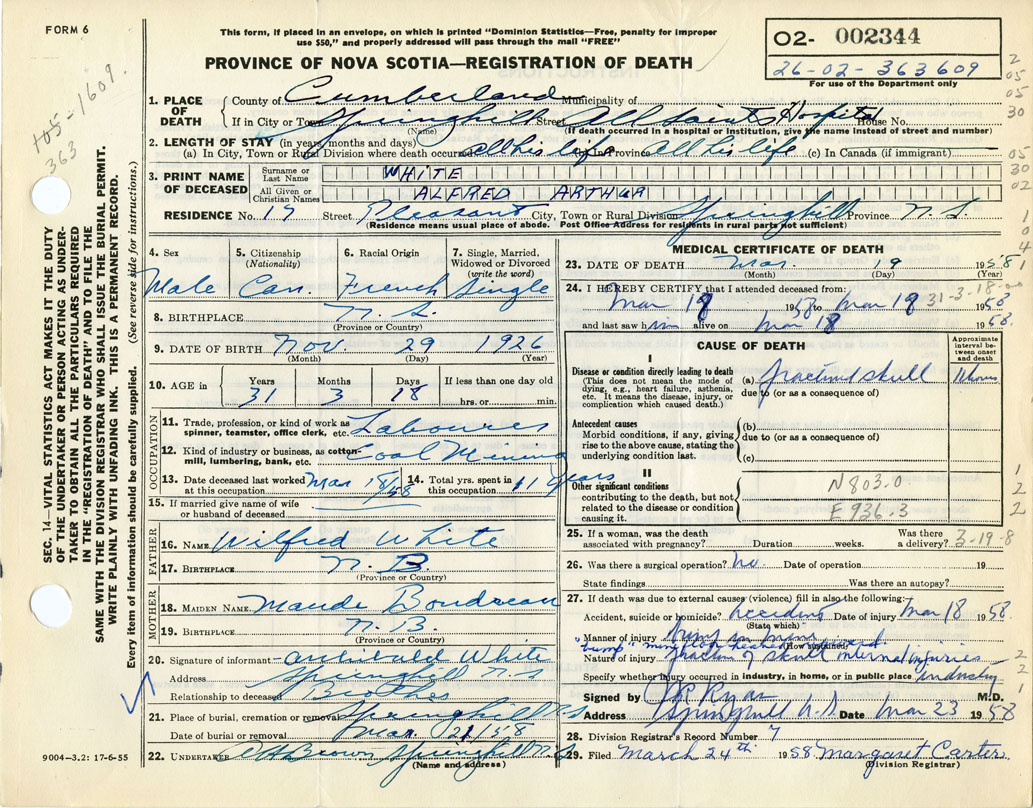 FORM 6
This form, if placed in an envelope, on which is printed "Dominion Statistics—Free, penalty for improper
use $50," and properly addressed will pass through the mail "FREE"
PROVINCE OF NOVA SCOTIA—REGISTRATION OF DEATH
02- 002344
26-02-363609
For use of the Department only
105-1609.
363
2
05
05
30
05
30
02
1
0
4
1
1
2
2
2
2
1
SEC. 14—VITAL STATISTICS ACT MAKES IT THE DUTY
OF THE UNDERTAKER OR PERSON ACTING AS UNDER-
TAKER TO OBTAIN ALL THE PARTICULARS REQUIRED
IN THE "REGISTRATION OF DEATH" AND TO FILE THE
SAME WITH THE DIVISION REGISTRAR WHO SHALL ISSUE THE BURIAL PERMIT.
WRITE PLAINLY WITH UNFADING INK. THIS IS A PERMANENT RECORD.
Every item of information should be carefully supplied. (See reverse side for instructions.)
1. PLACE OF DEATH
County of Cumberland Municipality of
If in City or Town Springhill Street All Saints Hospital House No.
(Name) (If death occurred in a hospital or institution, give the name instead of street and number)
2. LENGTH OF STAY (in years, months and days)
(a) In City, Town or Rural Division where death occurred all his life (b) In Province All his life (c) In Canada (if immigrant)
3. PRINT NAME OF DECEASED
Surname or Last Name WHITE
All Given or Christian Names ALFRED ARTHUR
RESIDENCE No. 17 Street Pleasant City, Town or Rural Division Springhill Province N.S.
(Residence means usual place of abode. Post Office Address for residents in rural parts not sufficient)
4. Sex
Male
5. Citizenship
(Nationality)
Can.
6. Racial Origin
French
7. Single, Married,
Widowed or Divorced
(write the word)
Single
8. BIRTHPLACE N.S.
(Province or Country)
9. DATE OF BIRTH Nov. 29 1926
(Month) (Day) (Year)
10. AGE in
Years Months Days If less than one day old
31 3 18 hrs. or min.
OCCUPATION
11. Trade, profession, or kind of work as
spinner, teamster, office clerk, etc. Labourer
12. Kind of industry or business, as cotton-
mill, lumbering, bank, etc. Coal Mining
13. Date deceased last worked
at this occupation Mar 18/58
14. Total yrs. spent in
this occupation 11 years
15. If married give name of wife
or husband of deceased
FATHER
16. NAME Wilfred White
17. BIRTHPLACE N.B
(Province or Country)
MOTHER
18. MAIDEN NAME Maude Boudreau
19. BIRTHPLACE N.B.
(Province or Country)
20. Signature of informant Archibald White
Address Springhill N.S
Relationship to deceased Brother
21. Place of burial, cremation or removal Springhill N.S
Date of burial or removal Mar. 21/58
22. UNDERTAKER Brown Springhill N.S
(Name and address)
9004—3.2: 17-6-55
MEDICAL CERTIFICATE OF DEATH
23. DATE OF DEATH Mar. 19 1958
(Month) (Day) (Year)
24. I HEREBY CERTIFY that I attended deceased from:
31-3-18
Mar 18 1958 to Mar 18 1958
and last saw him alive on Mar 18 1958.
CAUSE OF DEATH
Approximate
interval be-
tween onset
and death
I
Disease or condition directly leading to death
(This does not mean the mode of
dying, e.g., heart failure, asthenia,
etc. It means the disease, injury, or
complication which caused death.)
(a) fractured skull 11 hours
due to (or as a consequence of)
Antecedent causes
Morbid conditions, if any, giving
rise to the above cause, stating the
underlying condition last.
(b)
due to (or as a consequence of)
(c)
II
Other significant conditions
contributing to the death, but not
related to the disease or condition
causing it.
N803.0
E936.3
25. If a woman, was the death
associated with pregnancy? Duration weeks. Was there a delivery? 3-19-8
26. Was there a surgical operation? no. Date of operation 19
State findings Was there an autopsy?
27. If death was due to external causes (violence) fill in also the following:
Accident, suicide or homicide? accident Date of injury Mar 18 1958.
(State which)
Manner of injury Bump in mine
(How sustained)
"bump" mine floor heaved
Nature of injury fracture of skull internal injuries
Specify whether injury occurred in industry, in home, or in public place industry
Signed by Ryan M.D.
Address Springhill N.S. Date Mar 23 1958
28. Division Registrar's Record Number 7
29. Filed March 24th 1958 Margaret Carter
(Division Registrar)